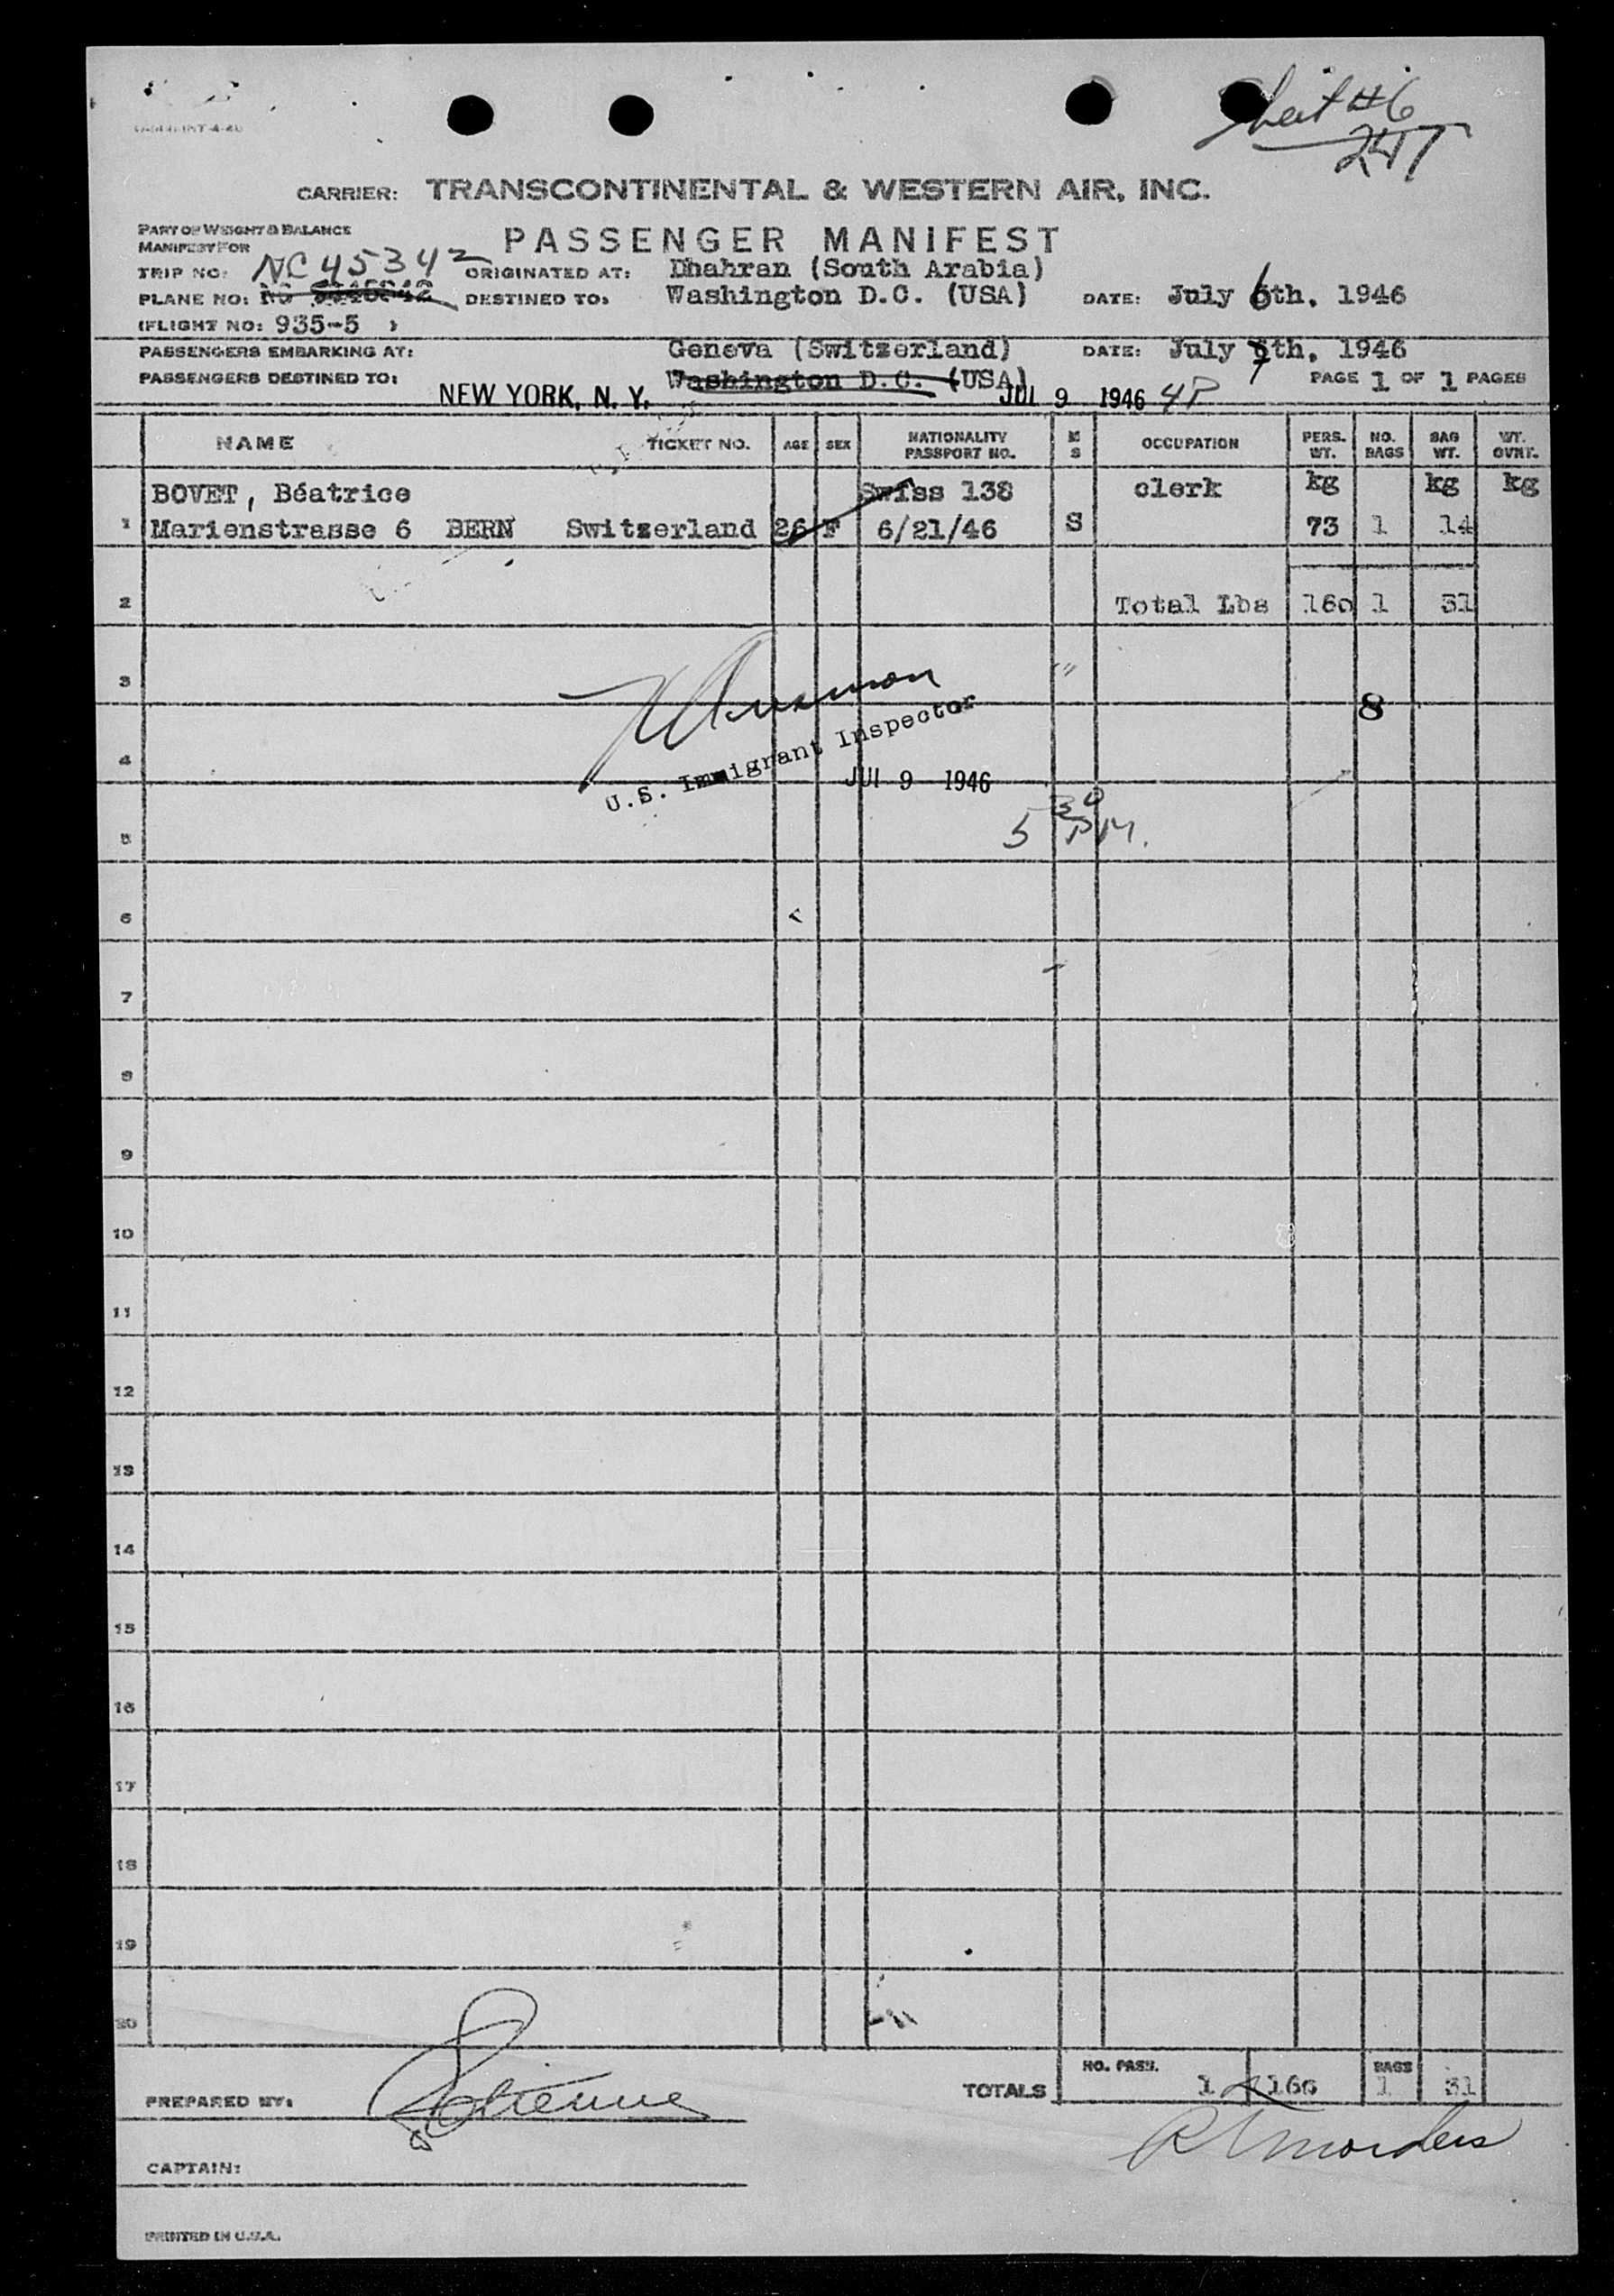 Sheet #6
247
CARRIER: TRANSCONTINENTAL & WESTERN AIR, INC.
PART OF WEIGHT & BALANCE
MANIFEST FOR
PASSENGER MANIFEST
TRIP NO: NC 45342 ORIGINATED AT: Dhahran (South Arabia)
PLANE NO: NC DESTINED TO: Washington D.C. (USA) DATE: July 6th. 1946
(FLIGHT NO: 935-5 )
PASSENGERS EMBARKING AT: Geneva (Switzerland) DATE: July 7th. 1946
PASSENGERS DESTINED TO: Washington D.C. (USA) PAGE 1 OF 1 PAGES
NEW YORK, N. Y. JUL 9 1946 4P
NAME TICKET NO. AGE SEX NATIONALITY PASSPORT NO. M S OCCUPATION PERS. WT. NO. BAGS BAG WT. WT. OVNT.
BOVET, Béatrice Swiss 138 clerk kg kg kg
1 Marienstrasse 6 BERN Switzerland 26 F 6/21/46 S 73 1 14
2 Total Lbs 160 1 31
3
8
U.S. Immigrant Inspector
4
JUL 9 1946
5 30 PM.
5
6
7
8
9
10
11
12
13
14
15
16
17
18
19
20
NO. PASS. BAGS
TOTALS 1 160 1 31
PREPARED BY:
CAPTAIN:
PRINTED IN U.S.A.